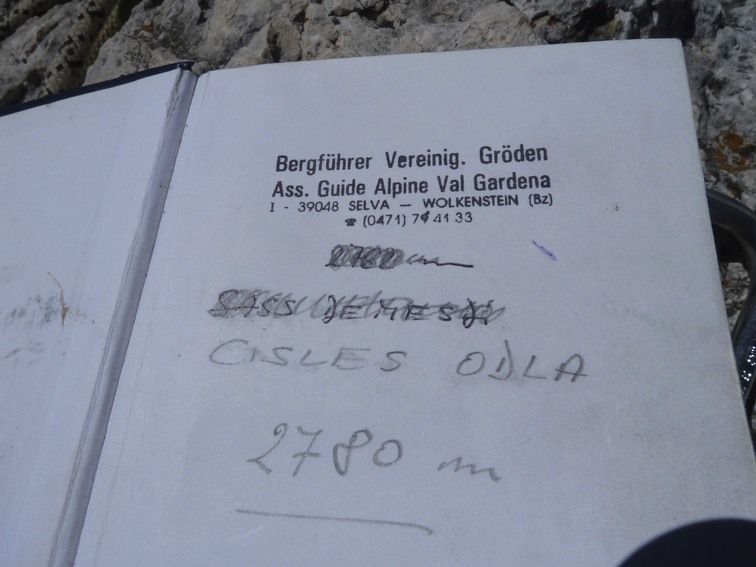 Bergführer Vereinig. Gröden
Ass. Guide Alpine Val Gardena
I - 39048 SELVA — WOLKENSTEIN (Bz)
☎ (0471) 79 41 33
2762 m
SASS DE MESDI
CISLES ODLA
2780 m